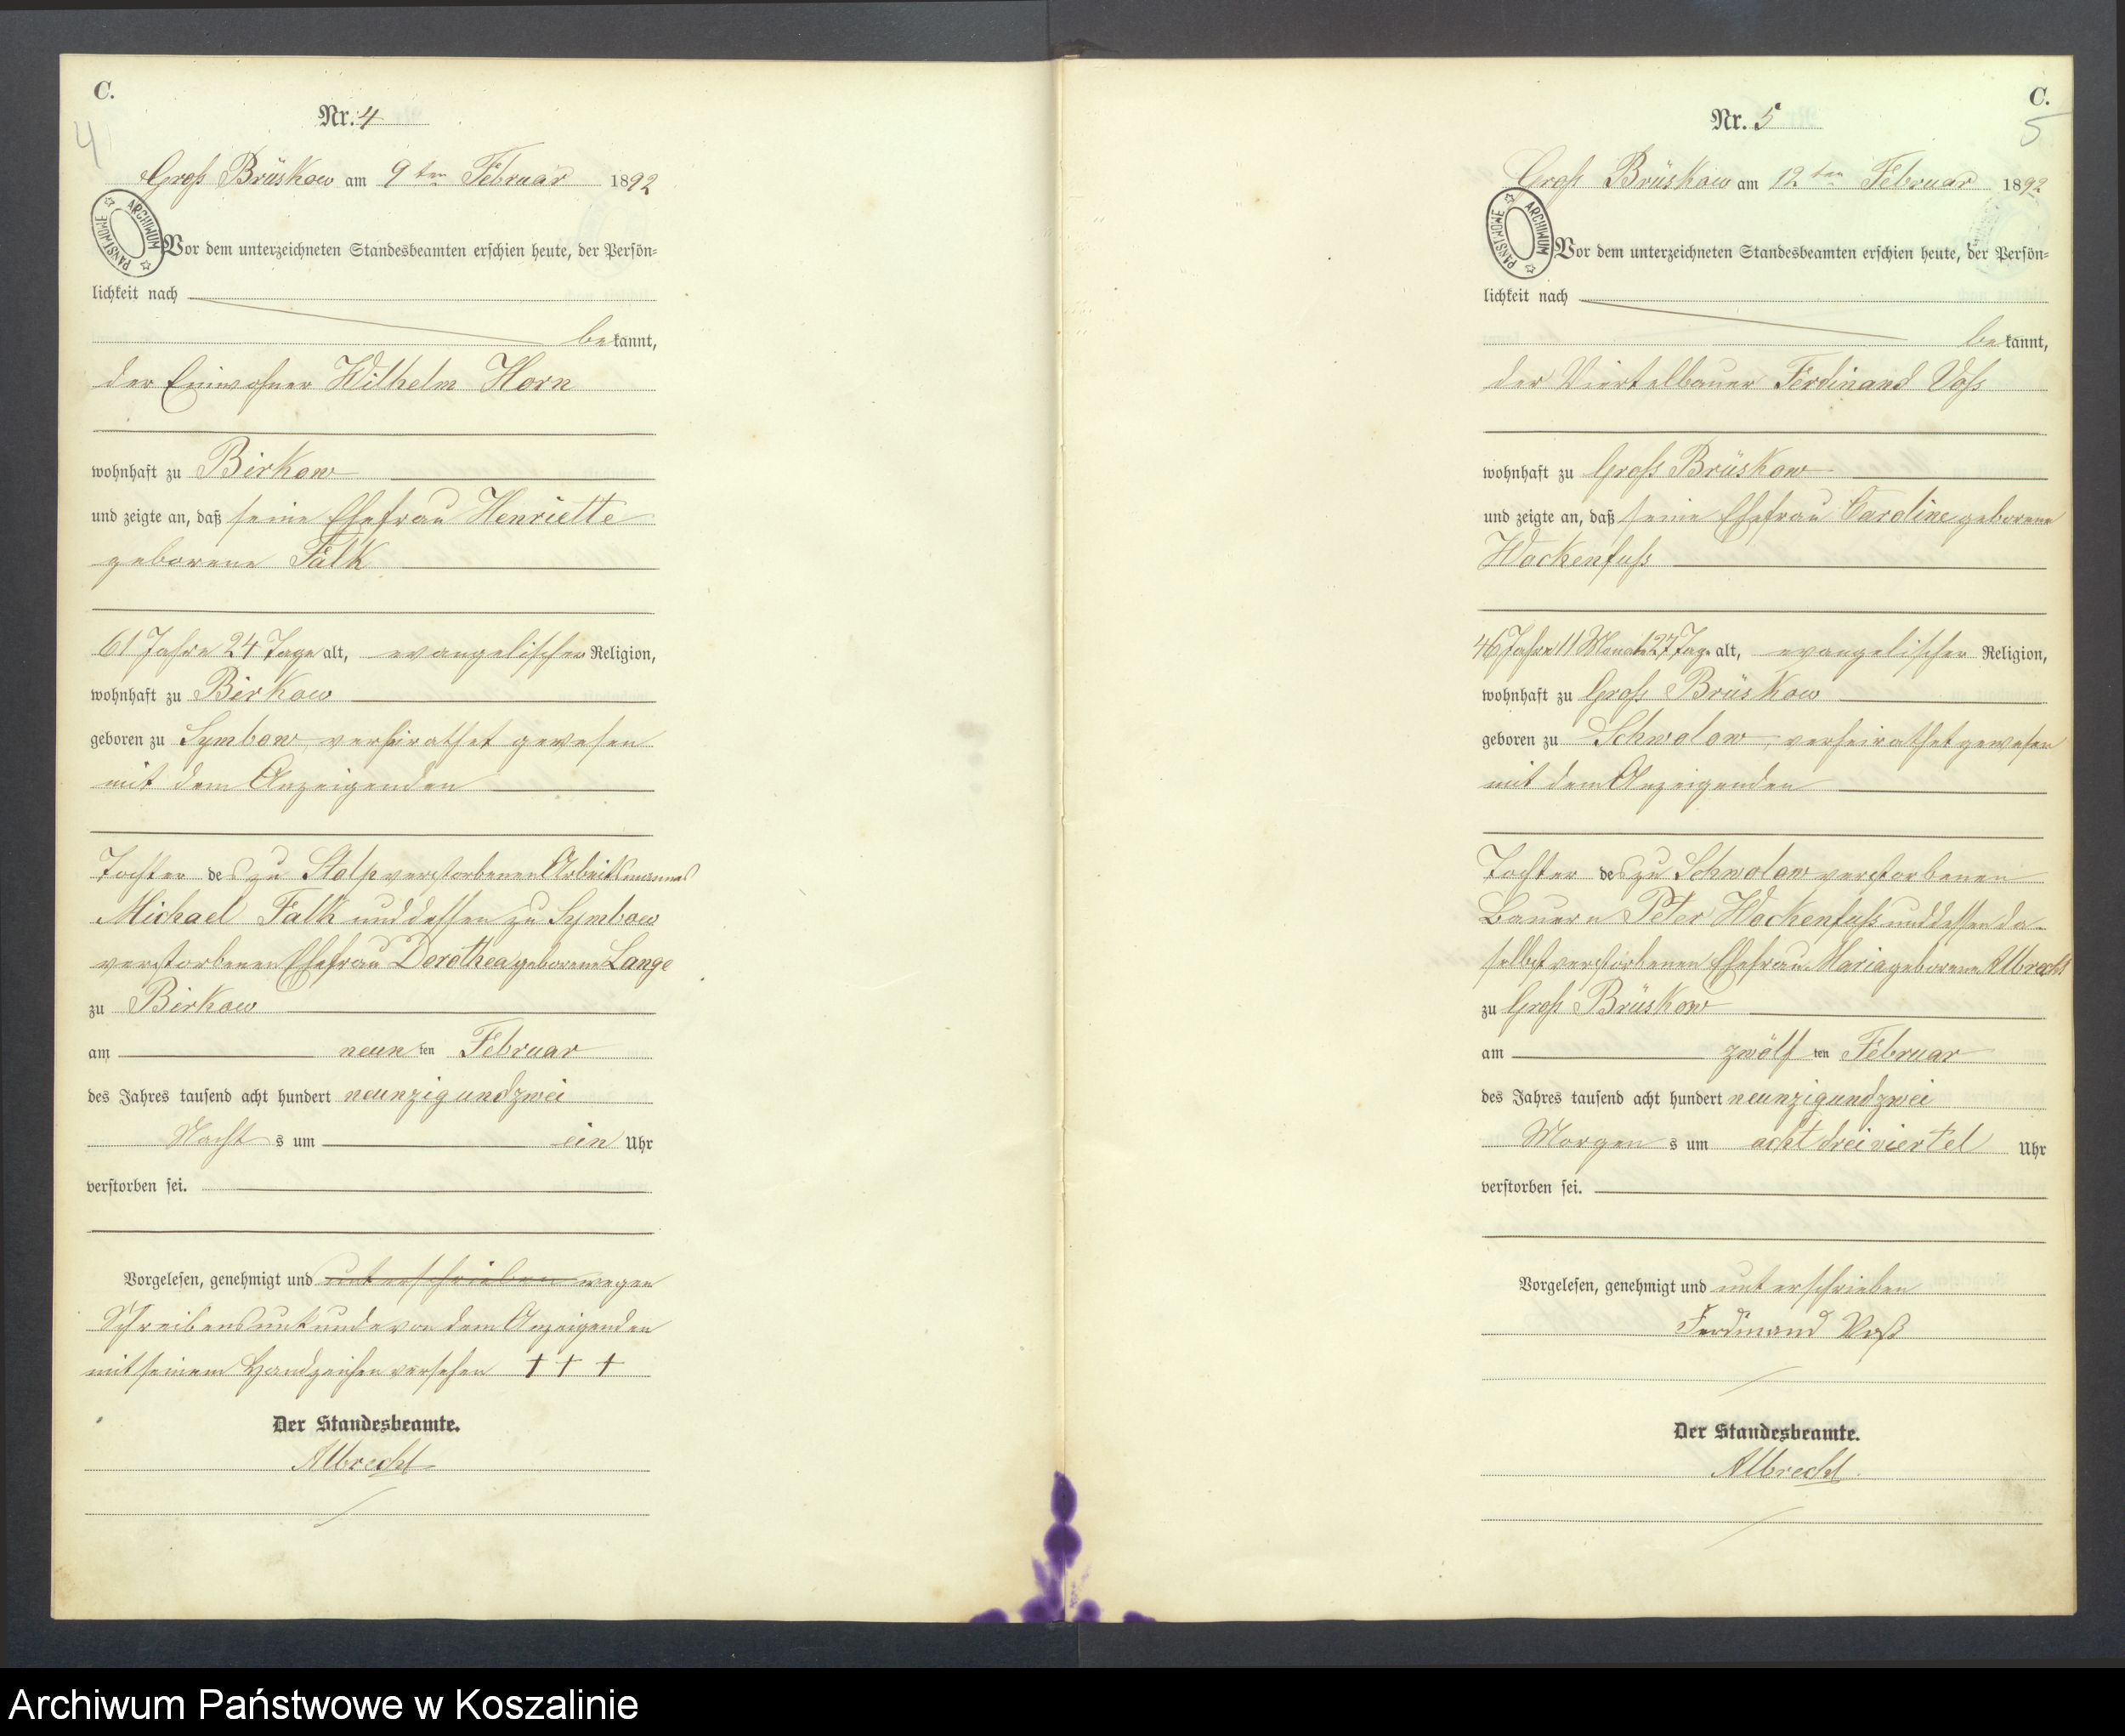 C.
4
Nr. 4
Groß Brüskow am 9ten Februar 1892
ARCHIWUM PAŃSTWOWE
Vor dem unterzeichneten Standesbeamten erschien heute, der Persön-
lichkeit nach
bekannt,
der Einwohner Wilhelm Horn
wohnhaft zu Birkow
und zeigte an, daß seine Ehefrau Henriette
geborene Falk
61 Jahre 24 Tage alt, evangelischer Religion,
wohnhaft zu Birkow
geboren zu Symbow, verheirathet gewesen
mit dem Anzeigenden
Tochter des zu Stolp verstorbenen Arbeitsmannes
Michael Falk und dessen zu Symbow
verstorbenen Ehefrau Dorothea geborene Lange
zu Birkow
am neunten Februar
des Jahres tausend acht hundert neunzig und zwei
Nachts um ein Uhr
verstorben sei.
Vorgelesen, genehmigt und unterschrieben wegen
Schreibensunkunde von dem Anzeigenden
mit seinem Handzeichen versehen † † †
Der Standesbeamte.
Albrecht
C.
5
Nr. 5
Groß Brüskow am 12ten Februar 1892
ARCHIWUM PAŃSTWOWE
Vor dem unterzeichneten Standesbeamten erschien heute, der Persön-
lichkeit nach
bekannt,
der Viertelbauer Ferdinand Voß
wohnhaft zu Groß Brüskow
und zeigte an, daß seine Ehefrau Caroline geborene
Wockenfuß
46 Jahre 11 Monate 27 Tage alt, evangelischer Religion,
wohnhaft zu Groß Brüskow
geboren zu Schwolow, verheirathet gewesen
mit dem Anzeigenden
Tochter des zu Schwolow verstorbenen
Bauern Peter Wockenfuß und dessen da-
selbst verstorbenen Ehefrau Maria geborene Albrecht
zu Groß Brüskow
am zwölften Februar
des Jahres tausend acht hundert neunzig und zwei
Morgens um acht dreiviertel Uhr
verstorben sei.
Vorgelesen, genehmigt und unterschrieben
Ferdinand Voß
Der Standesbeamte.
Albrecht
Archiwum Państwowe w Koszalinie